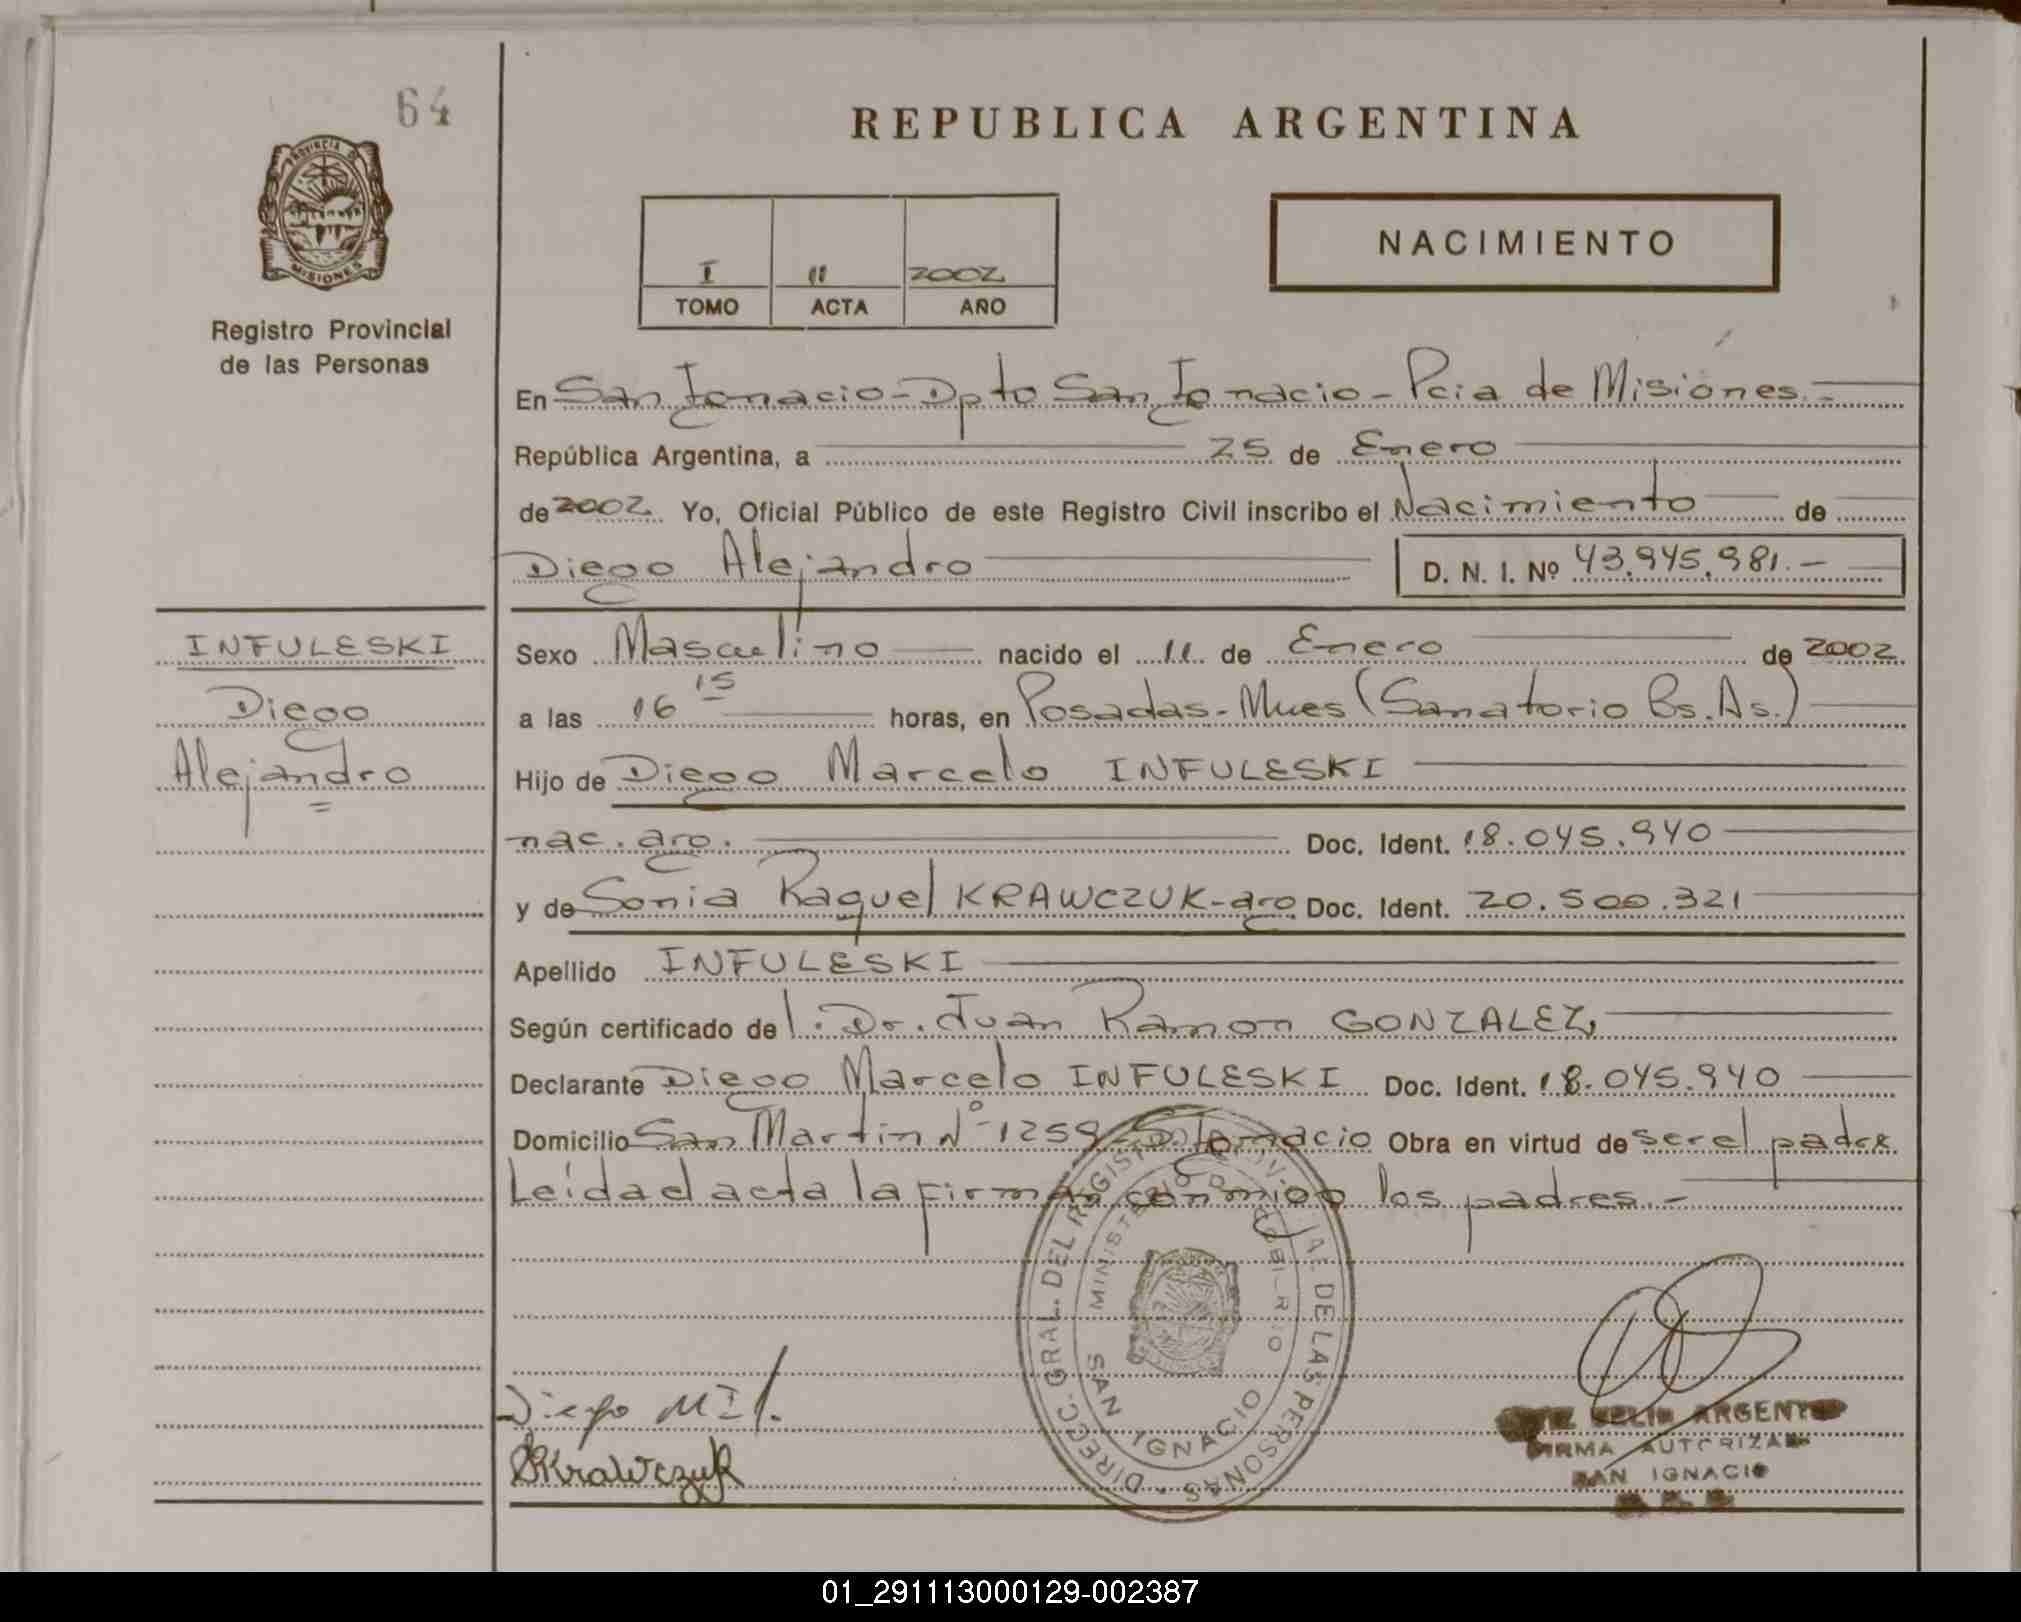 64
PROVINCIA DE
MISIONES
Registro Provincial
de las Personas
REPUBLICA ARGENTINA
I 11 2002
TOMO ACTA AÑO
NACIMIENTO
En San Ignacio - Dpto San Ignacio - Pcia de Misiones.-
República Argentina, a 25 de Enero
de 2002 Yo, Oficial Público de este Registro Civil inscribo el Nacimiento de
Diego Alejandro D. N. I. Nº 43.945.981.-
INFULESKI
Diego
Alejandro
Sexo Masculino nacido el 11 de Enero de 2002
a las 16 15 horas, en Posadas - Mnes (Sanatorio Bs. As.)
Hijo de Diego Marcelo INFULESKI
nac. arg. Doc. Ident. 18.045.940
y de Sonia Raquel KRAWCZUK - arg Doc. Ident. 20.500.321
Apellido INFULESKI
Según certificado del. Dr. Juan Ramon GONZALEZ,
Declarante Diego Marcelo INFULESKI Doc. Ident. 18.045.940
Domicilio San Martín Nº 1259 - S. Ignacio Obra en virtud de ser el padre
Leída el acta la firman conmigo los padres.-
DIRECC. GRAL. DEL REGISTRO PROV. DE LAS PERSONAS
MINISTERIO DE GOBIERNO
SAN IGNACIO
Diego M I
SKrawczuk
ARGENT
FIRMA AUTORIZADA
SAN IGNACIO
01_291113000129-002387